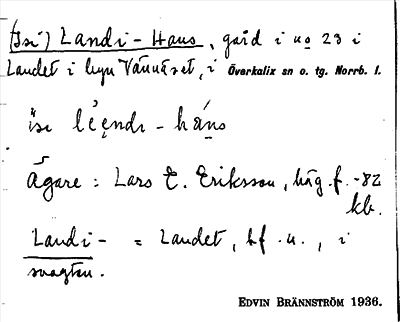 (Isi') Landi-Hans, gård i no 23 i
Landet i byn Vännäset, i Överkalix sn o. tg. Norrb. l.
ïsi léendi-háns
Ägare: Lars E. Eriksson, häg. f. -82
kb.
Landi- = Landet, bf. u., i
svagton.
EDVIN BRÄNNSTRÖM 1936.